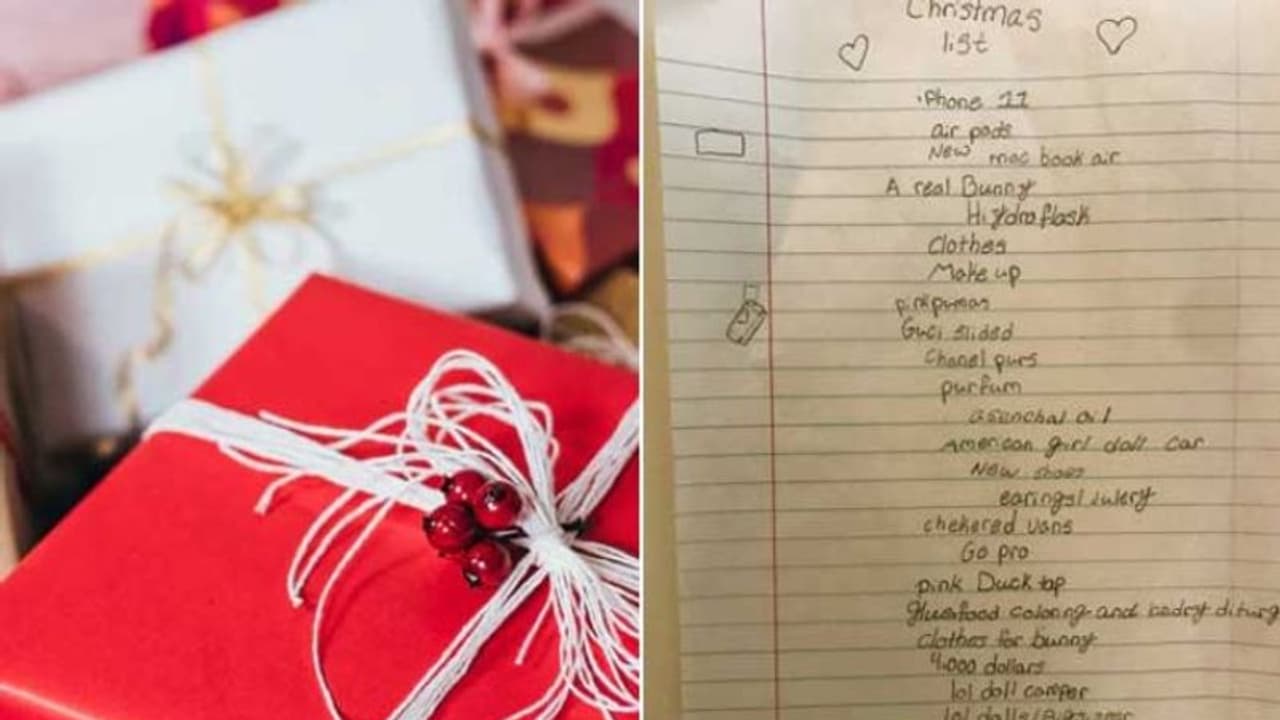 Christmas
list
iPhone 11
air pods
New mac book air
A real Bunny
Hydroflask
Clothes
Make up
pink pumas
Guci slided
Chanel purs
purfum
asenchal oil
American girl doll car
New shoes
earings/
chekered vans
Go pro
pink Duck tap
food coloring and
clothes for bunny
4,000 dollars
lol doll camper
lol dolls